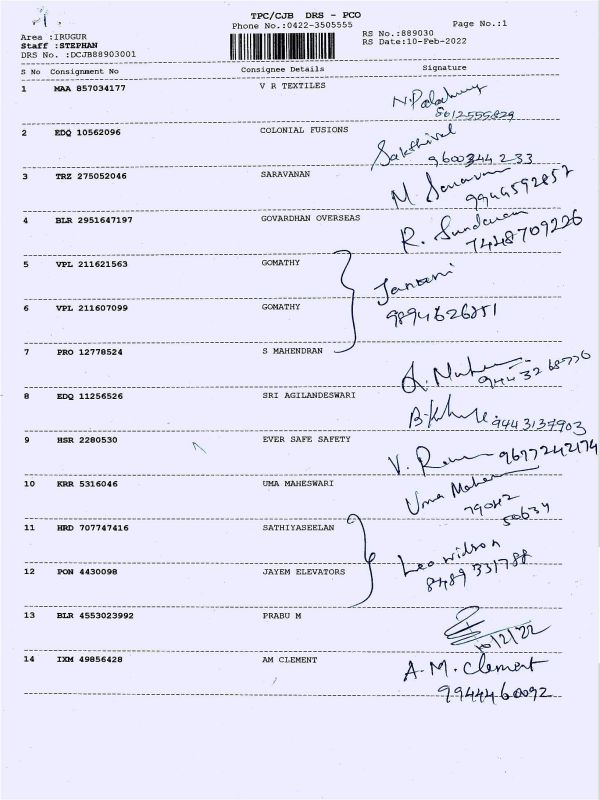 TPC/CJB DRS - PCO
Phone No.:0422-3505555 Page No.:1
Area :IRUGUR RS No.:889030
Staff :STEPHAN RS Date:10-Feb-2022
DRS No. :DCJB88903001
S No Consignment No Consignee Details Signature
1 MAA 857034177 V R TEXTILES
2 EDQ 10562096 COLONIAL FUSIONS Sakthival
9600344233
3 TRZ 275052046 SARAVANAN M. Saravanan
9944592857
4 BLR 2951647197 GOVARDHAN OVERSEAS R. Sundaram
7448709226
5 VPL 211621563 GOMATHY Janani
6 VPL 211607099 GOMATHY 9894626251
7 PRO 12778524 S MAHENDRAN
8 EDQ 11256526 SRI AGILANDESWARI 9443137903
9 HSR 2280530 EVER SAFE SAFETY 9677242174
10 KRR 5316046 UMA MAHESWARI Uma
79042
50634
11 HRD 707747416 SATHIYASEELAN Leo Wilson
12 PON 4430098 JAYEM ELEVATORS 8489331788
13 BLR 4553023992 PRABU M 10/2/22
14 IXM 49856428 AM CLEMENT A.M. Clement
9944460092